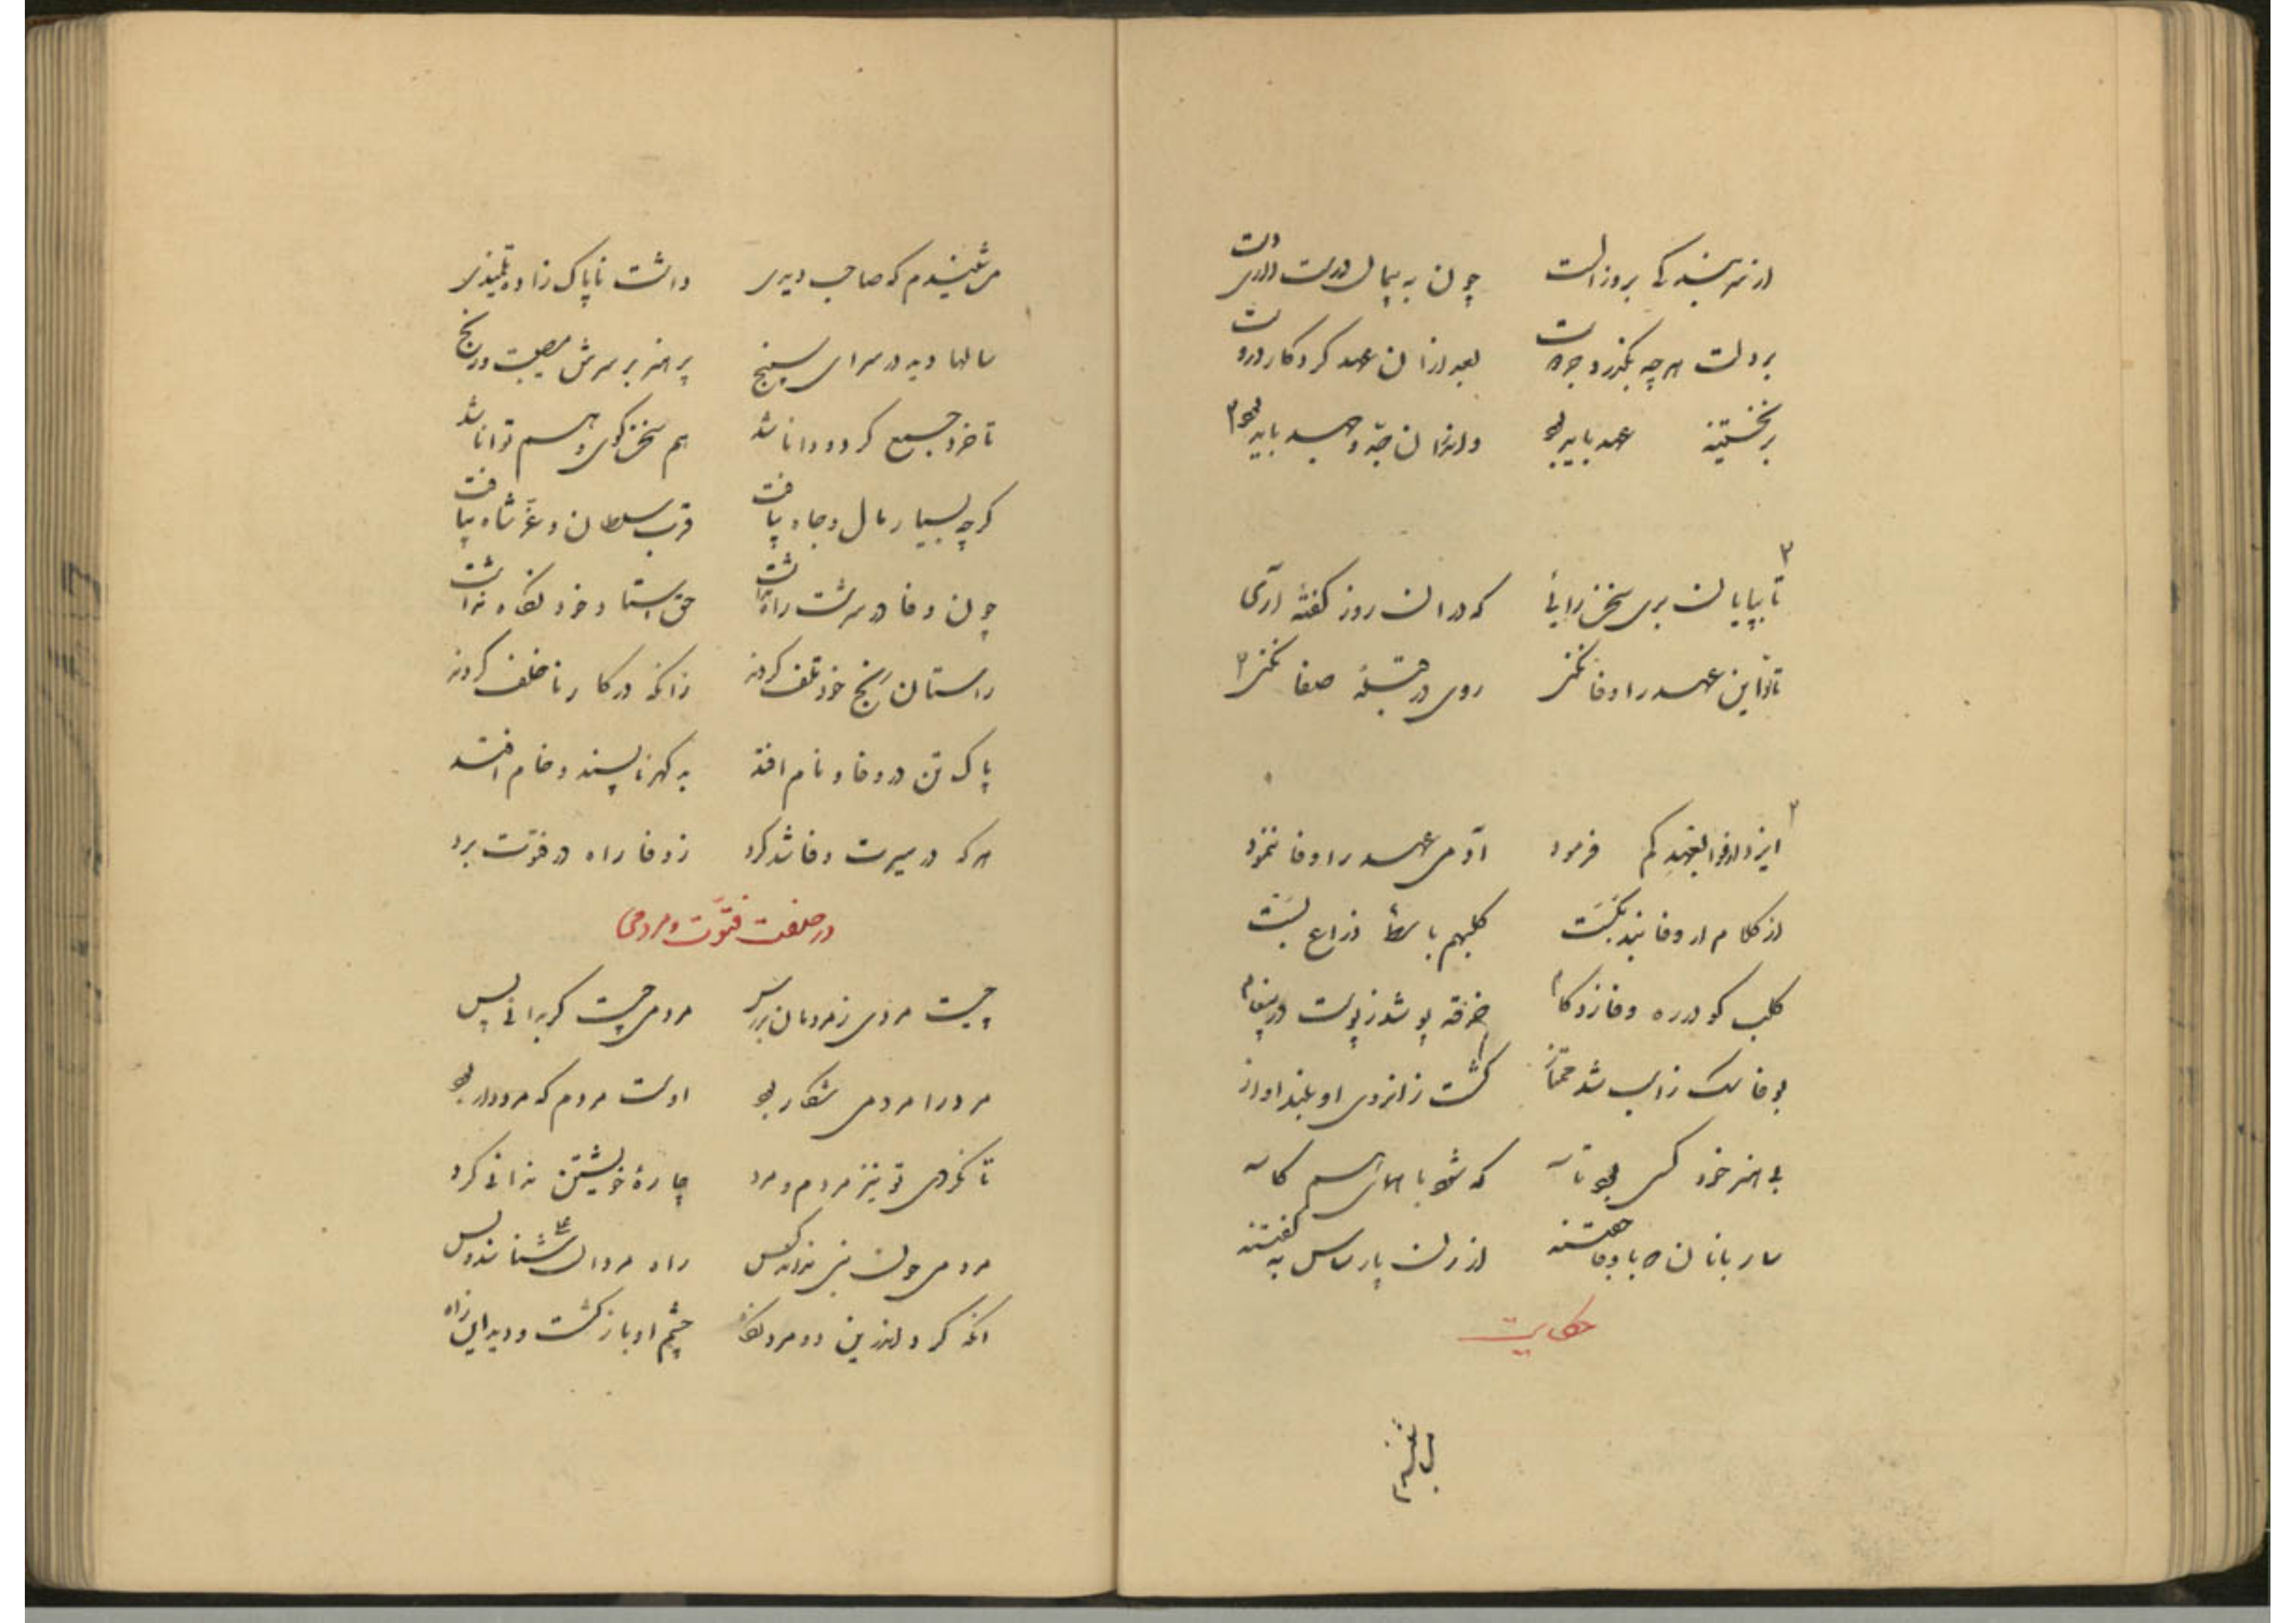 از نترسیدکی بروز الست چون به پیمان درست دادی دست
بر دلت هرچه بگذرد جز دوست بعد ازان عهد کرد کار دروست
بر نخستینه عهد باید بود وانزمان جد و جهد باید بود
تا بپایان بری سخن رانی که دران روز گفتهٔ آری
تا تو این عهد را وفا نکنی روی در قبلهٔ صفا نکنی
ایزد اوفوا بعهدکم فرمود آدمی عهد را وفا ننمود
از کلام ار وفا نیند بکست کلبهم باسط ذراع بست
کلب کو در ره وفا زد کام خرقه پوشد ز پوست در
بوفا سک ز اسب شد ممتاز گشت زانروی او بلند اواز
بی هنر خود کسی بود تاسه که شود با همای هم کاسه
ساربانان که باوفا جفتند از زدن پارساس به گفتند
حکایت
می شنیدم که صاحب دیری داشت ناپاک زاده تلمیذی
سالها دید در سرای سپنج پر هنر بر سرش مصیبت و رنج
تا خرد جمع کرد و دانا شد هم سخن گوی و هم توانا شد
گرچه بسیار مال و جاه بیافت قرب سلطان و عزّ شاه بیافت
چون وفا در سرشت راه نداشت حق استاد خود نگاه نداشت
راستان رنج خود تلف کردند زانکه در کار ناخلف کردند
پاک تن در وفا و نام افتد بد گهر ناپسند و خام افتد
هر که در سیرت وفا شد کرد ز وفا راه در فتوت برد
در صفت فتوّت و مردمی
چیست مردی ز مردمان بررس مردمی چیست گر بدانی بس
مرد را مردمی شکار بود اوست مردم که مرددار بود
تا نگردی تو نیز مردم و مرد چارهٔ خویشتن ندانی کرد
مردمی جوان نبی نداند کس راه مردان علی شناسد و بس
آنکه کرد اندرین دو مرد نگاه چشم او باز گشت و دید این راه